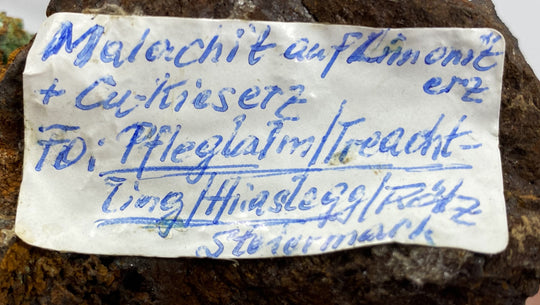 Malachit auf Limonit
erz
+ Cu-Kieserz
FO: Pflegalm/Treacht-
ling/Hinslegg/Rötz
Steiermark